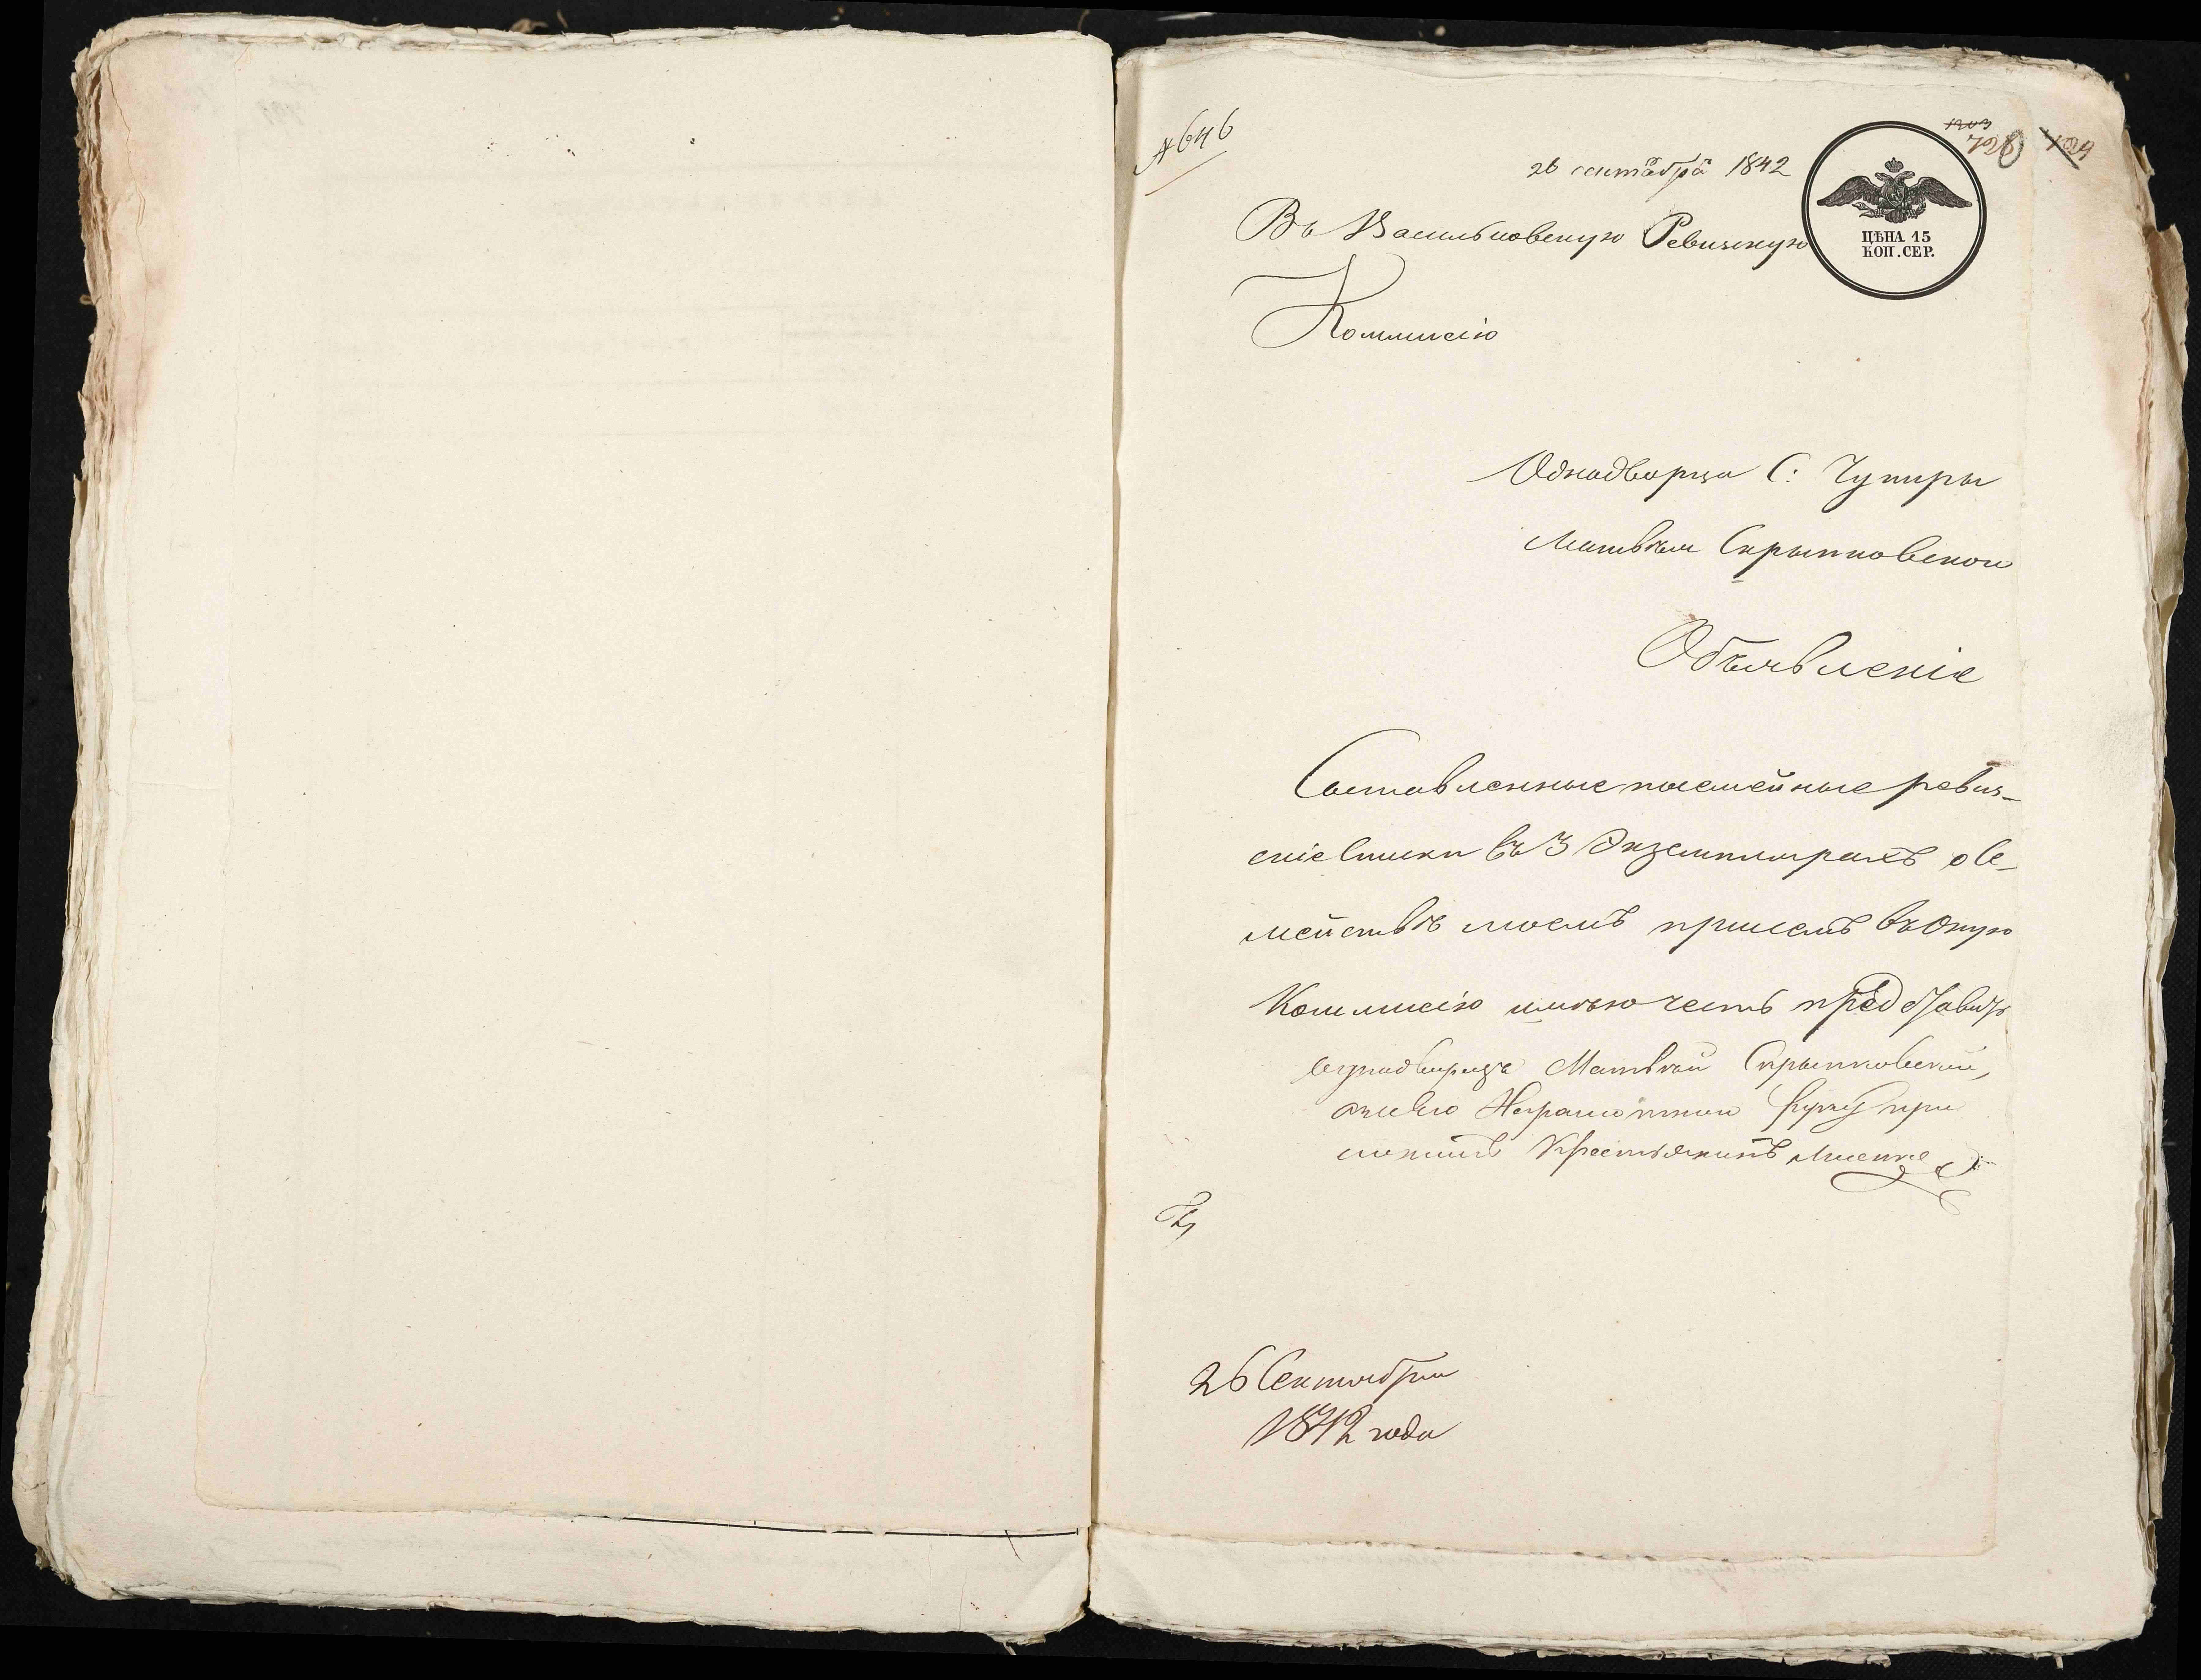 № 646
26 сентября 1842
Въ Васильковскую Ревизскую
Коммисію
ЦѢНА 15
КОП. СЕР.
Однодворца С: Чупиры
Матвѣя Скрыпковскои
Объявленіе
Составленные посемейные ревиз-
скіе Списки въ 3 Экземплярахъ о Се-
мействѣ моемъ при семъ въ Оную
Коммисію имѣю честь представить
однодворецъ Матвѣй Скрыпковскій,
а за его Неграмотного руку при
ложилъ Крестьянинъ
26 Сентября
1842 года